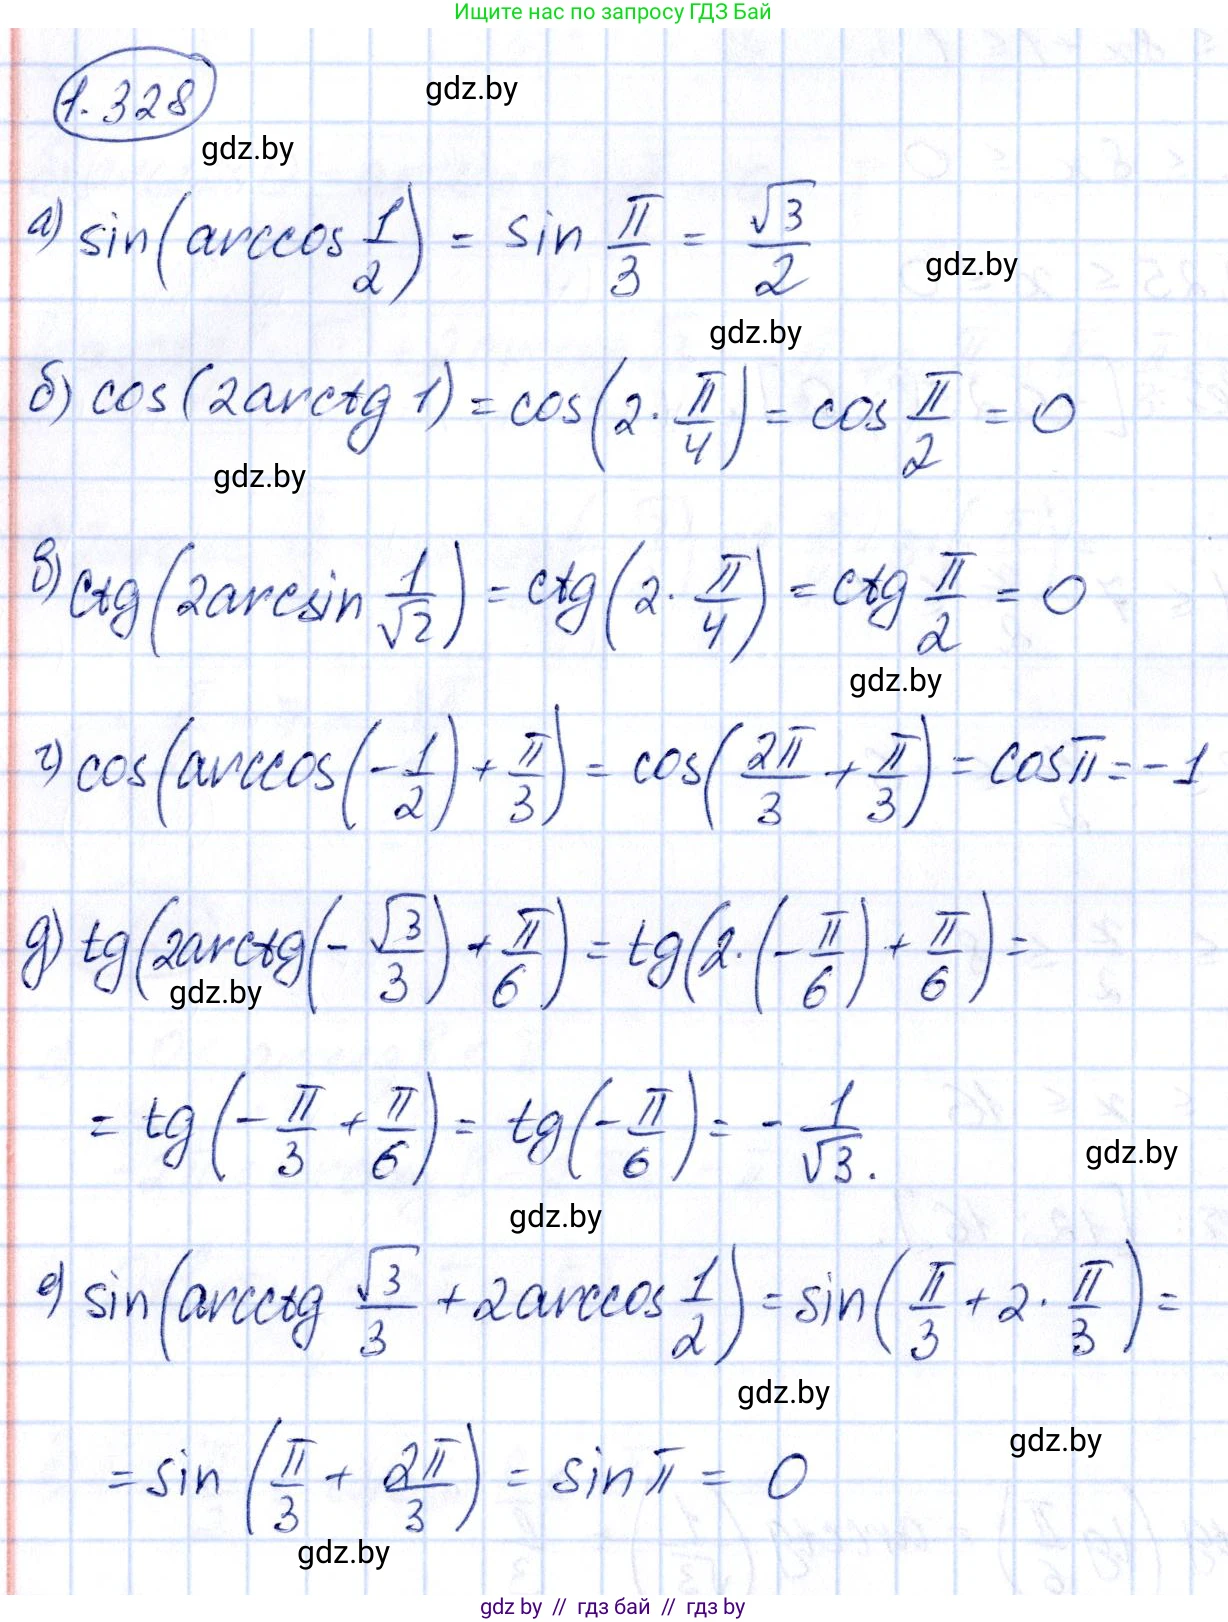 Ищите нас по запросу ГДЗ Бай
1.328
gdz.by
gdz.by
а) sin(arccos 1/2) = sin π/3 = √3/2
gdz.by
gdz.by
б) cos(2arctg 1) = cos(2·π/4) = cos π/2 = 0
gdz.by
в) ctg(2arcsin 1/√2) = ctg(2·π/4) = ctg π/2 = 0
gdz.by
г) cos(arccos(-1/2) + π/3) = cos(2π/3 + π/3) = cosπ = -1
д) tg(2arctg(-√3/3) + π/6) = tg(2·(-π/6) + π/6) =
gdz.by
= tg(-π/3 + π/6) = tg(-π/6) = -1/√3.
gdz.by
gdz.by
е) sin(arcctg √3/3 + 2arccos 1/2) = sin(π/3 + 2·π/3) =
gdz.by
gdz.by
= sin(π/3 + 2π/3) = sinπ = 0
gdz.by
gdz by // гдз бай // гдз by